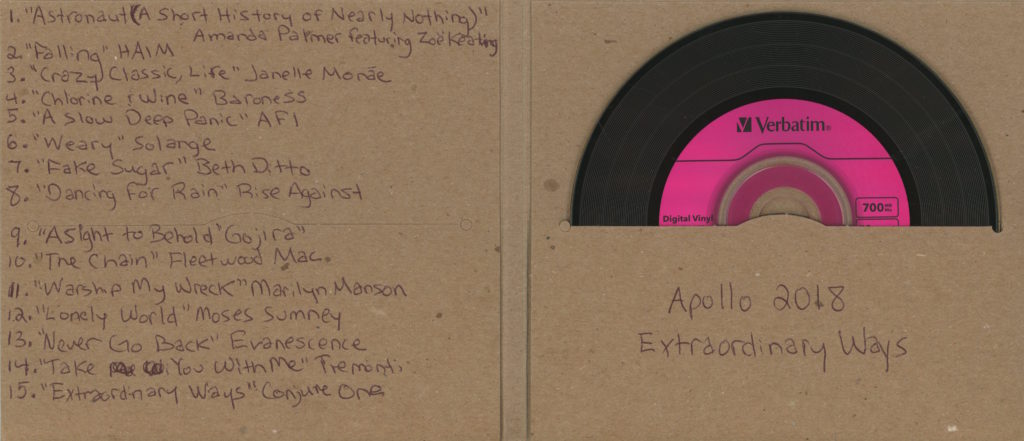 1. "Astronaut (A Short History of Nearly Nothing)"
Amanda Palmer featuring Zoë Keating
2. "Falling" HAIM
3. "Crazy, Classic, Life" Janelle Monáe
4. "Chlorine & Wine" Baroness
5. "A Slow Deep Panic" AFI
6. "Weary" Solange
7. "Fake Sugar" Beth Ditto
8. "Dancing For Rain" Rise Against
9. "A Sight to Behold' Gojira"
10. "The Chain" Fleetwood Mac
11. "Warship My Wreck" Marilyn Manson
12. "Lonely World" Moses Sumney
13. "Never Go Back" Evanescence
14. "Take You With Me" Tremonti
15. "Extraordinary Ways" Conjure One
Verbatim®
700 MB
Digital Vinyl
Apollo 2018
Extraordinary Ways